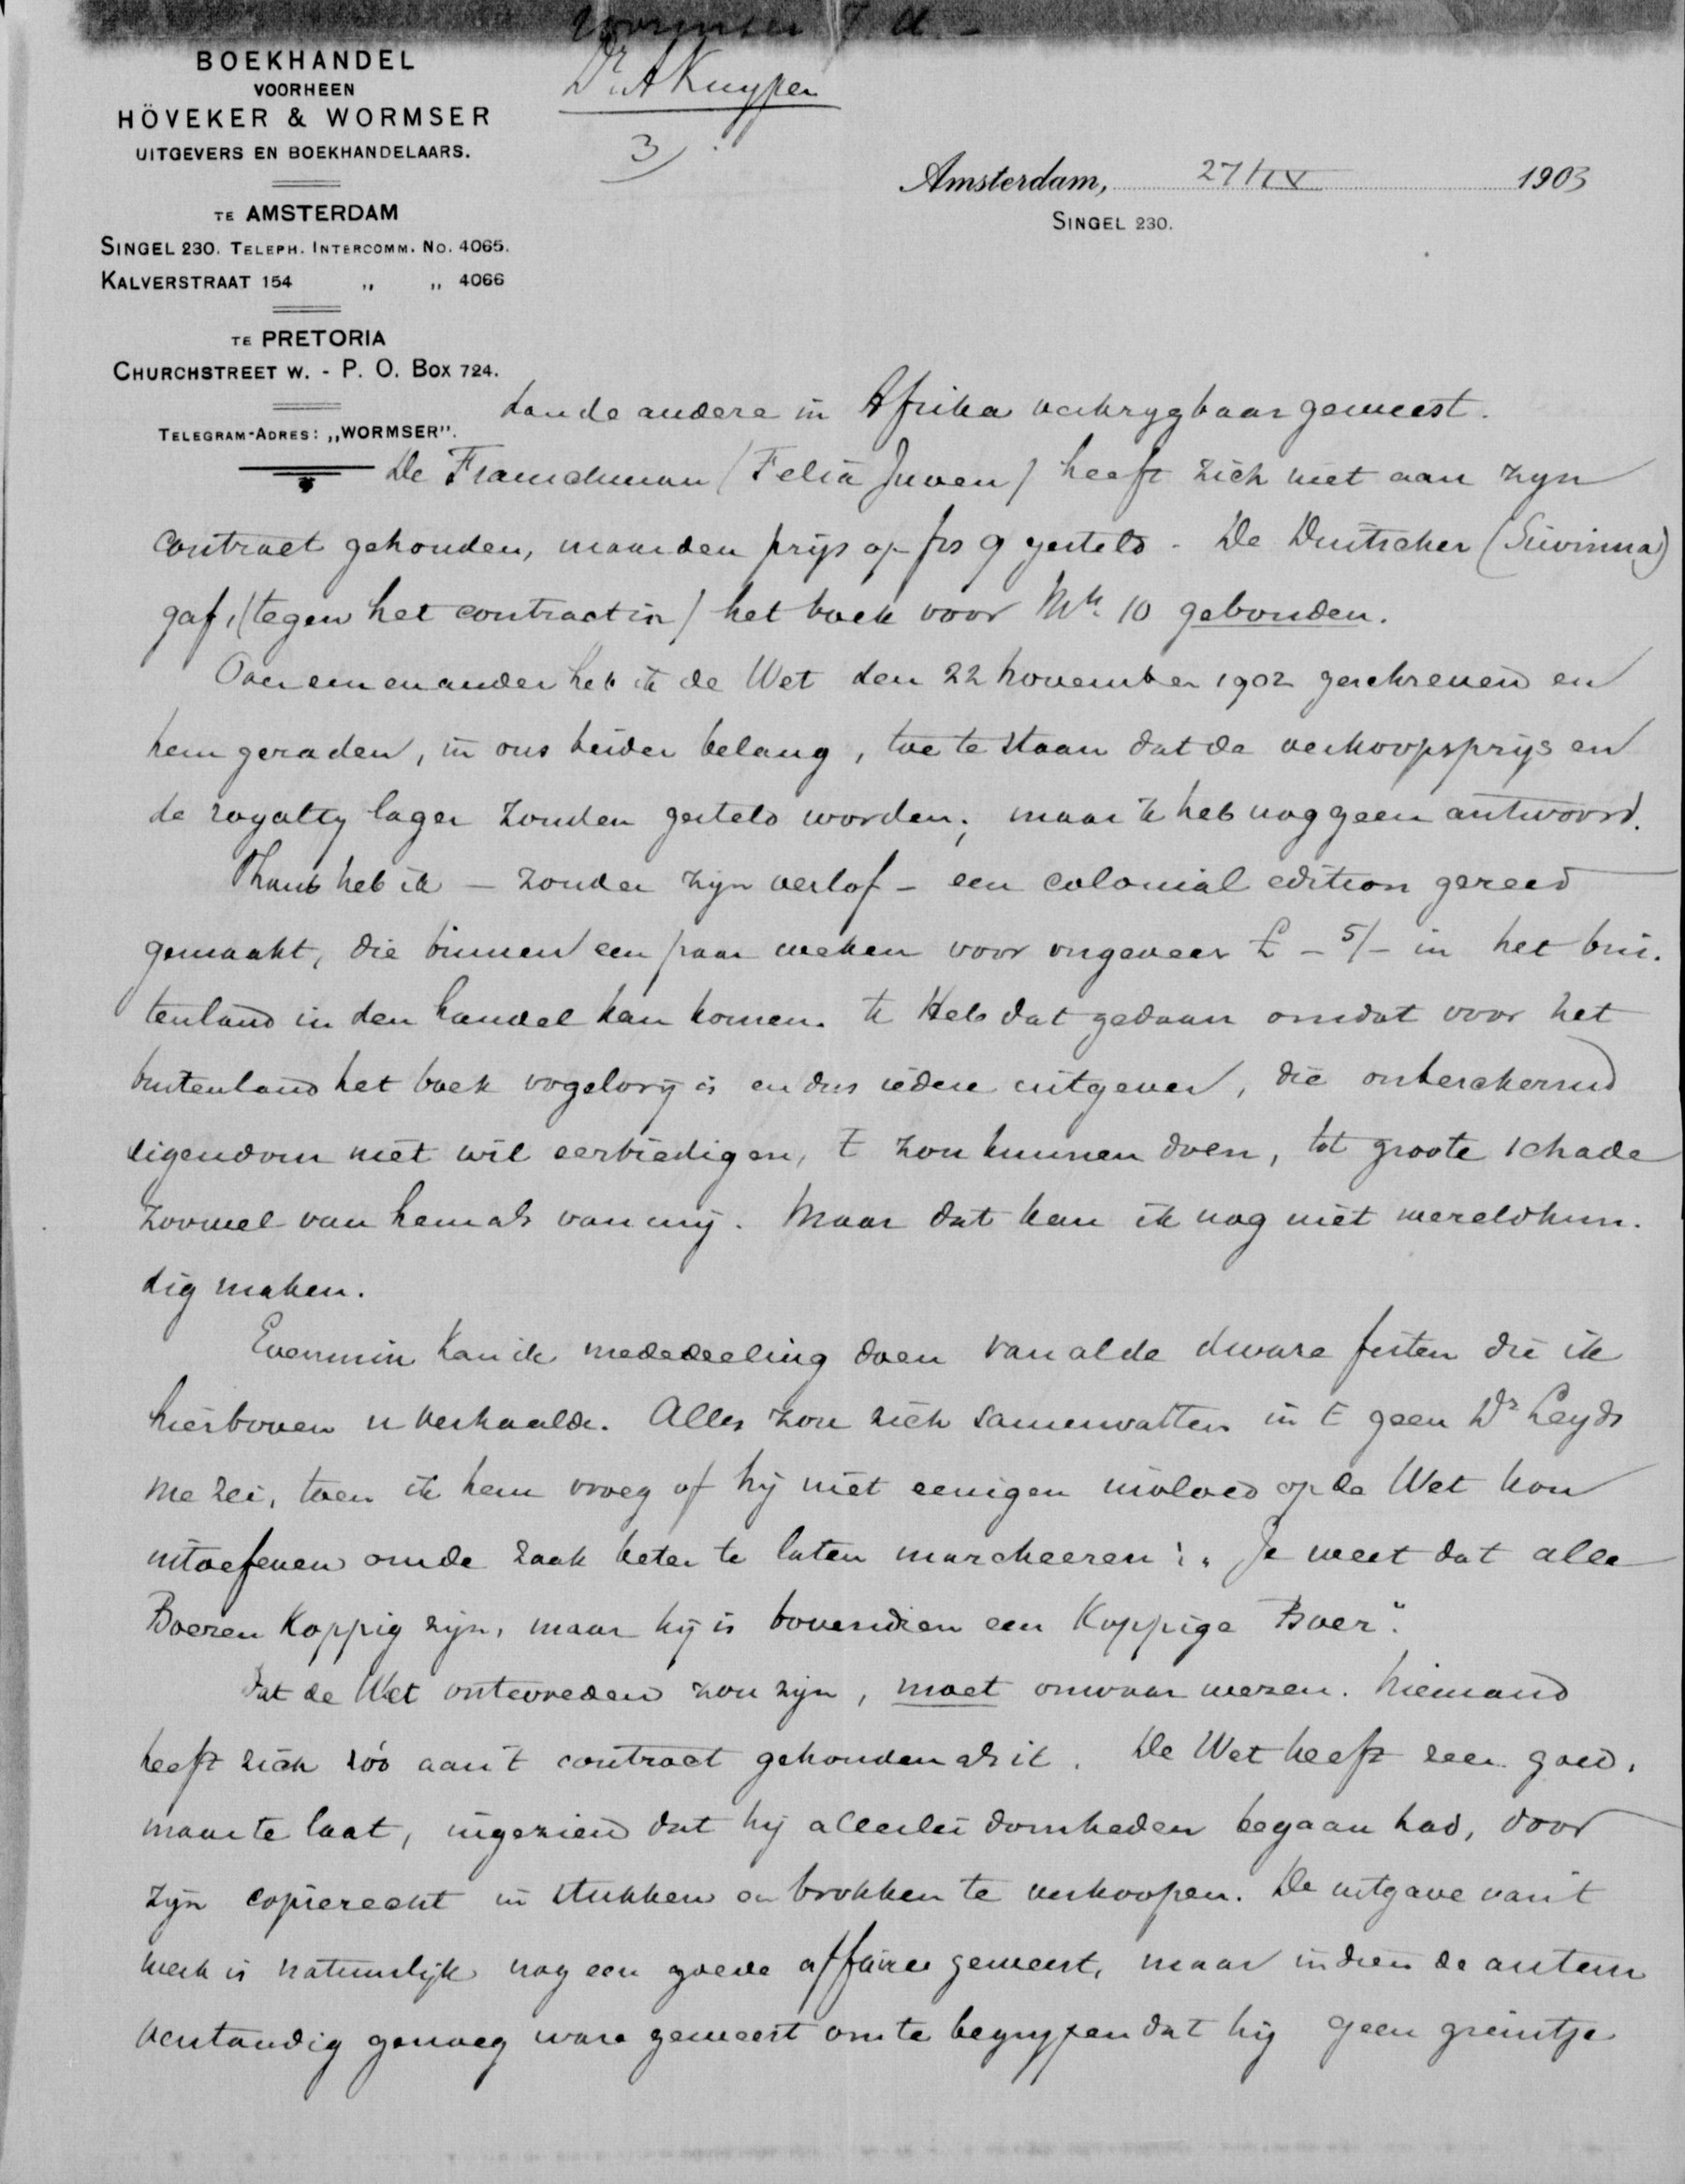 Wormser J A
Dr A Kuyper
3
BOEKHANDEL
VOORHEEN
HÖVEKER & WORMSER
UITGEVERS EN BOEKHANDELAARS.
TE AMSTERDAM
SINGEL 230. TELEPH. INTERCOMM. No. 4065.
KALVERSTRAAT 154 „ „ 4066
TE PRETORIA
CHURCHSTREET W. - P. O. BOX 724.
TELEGRAM-ADRES: „WORMSER".
Amsterdam, 27/IX 1903
SINGEL 230.
dan de andere in Afrika verkrygbaar geweest.
De Franschman (Felix Juven) heeft zich niet aan zyn
contract gehouden, maar den prijs op frs 9 gesteld. De Duitscher (Siwinna)
gaf, (tegen het contract in) het boek voor Mk. 10 gebonden.
Over een en ander heb ik de Wet den 22 November 1902 geschreven en
hem geraden, in ons beider belang, toe te staan dat de verkoopsprijs en
de royalty lager zouden gesteld worden; maar ik heb nog geen antwoord.
Thans heb ik - zonder zijn verlof - een colonial edition gereed
gemaakt, die binnen een paar weken voor ongeveer £ - 5/- in het bui-
tenland in den handel kan komen. Ik heb dat gedaan omdat voor het
buitenland het boek vogelvrij is en dus iedere uitgever, die onbeschermd
eigendom niet wil eerbiedigen, 't zou kunnen doen, tot groote schade
zoowel van hem als van mij. Maar dat kan ik nog niet wereldkun-
dig maken.
Evenmin kan ik mededeeling doen van al de dwaze feiten die ik
hierboven u verhaalde. Alles zou zich samenvatten in 't geen Dr Leyds
me zei, toen ik hem vroeg of hij niet eenigen invloed op de Wet kon
uitoefenen om de zaak beter te laten marcheeren: „Je weet dat alle
Boeren koppig zijn, maar hij is bovendien een koppige Boer".
Dat de Wet ontevreden zou zijn, moet onwaar wezen. Niemand
heeft zich zóó aan 't contract gehouden als ik. De Wet heeft zeer goed,
maar te laat, ingezien dat hij allerlei domheden begaan had, door
zijn copierecht in stukken en brokken te verkoopen. De uitgave van 't
werk is natuurlijk nog een goede affaire geweest, maar indien de auteur
verstandig genoeg ware geweest om te begrypen dat hij geen greintje